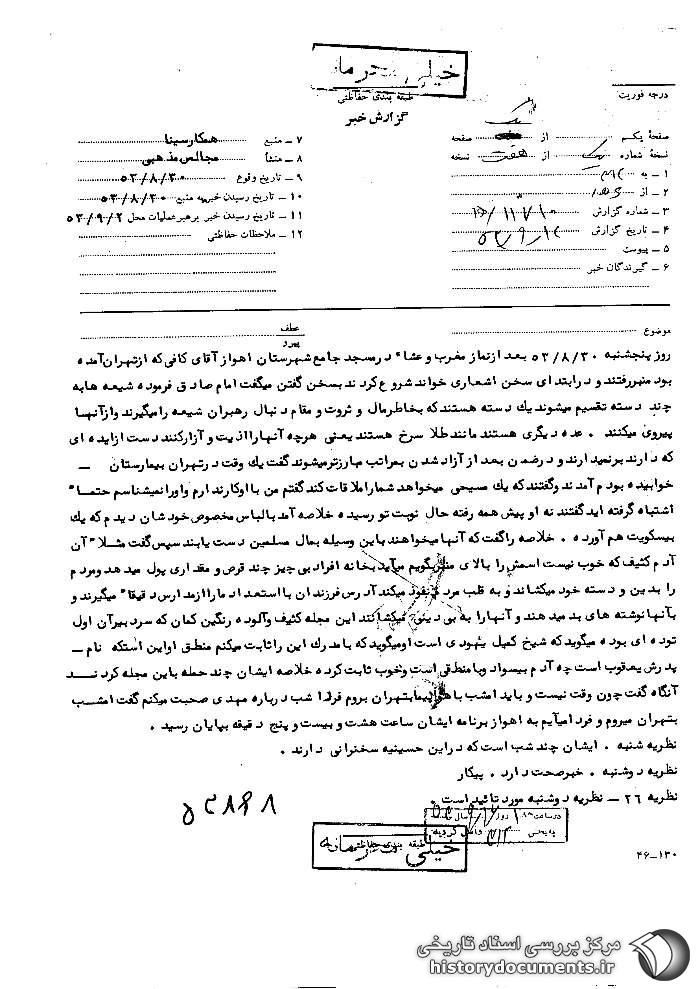 خیلی محرمانه
طبقه بندی حفاظتی
گزارش خبر
درجه فوریت:
صفحه یکم از یک صفحه
نسخه شماره یک از هفت نسخه
۱ ـ به
۲ ـ از
۳ ـ شماره گزارش
۴ ـ تاریخ گزارش
۵ ـ پیوست
۶ ـ گیرندگان خبر
۷ ـ منبع همکار سینا
۸ ـ منشأ مجالس مذهبی
۹ ـ تاریخ وقوع ۵۳/۸/۳۰
۱۰ ـ تاریخ رسیدن خبر به منبع ۵۳/۸/۳۰
۱۱ ـ تاریخ رسیدن خبر برهبر عملیات محل ۵۳/۹/۲
۱۲ ـ ملاحظات حفاظتی
موضوع
عطف
پیرو
روز پنجشنبه ۵۳/۸/۳۰ بعد ازنماز مغرب و عشاء درمسجد جامع شهرستان اهواز آقای کافی که ازتهران آمده
بود منبررفتند و درابتدای سخن اشعاری خواند شروع کردند بسخن گفتن میگفت امام صادق فرموده شیعه هابه
چند دسته تقسیم میشوند یك دسته هستند که بخاطرمال و ثروت و مقام دنبال رهبران شیعه را میگیرند وازآنها
پیروی میکنند . عده دیگری هستند مانند طلا سرخ هستند یعنی هرچه آنهارااذیت و آزارکنند دست ازایده ای
که دارند برنمیدارند و درضمن بعد از آزاد شدن بمراتب مبارزترمیشوند گفت یك وقت درتهران بیمارستان ـ
خوابیده بودم آمدند وگفتند که یك مسیحی میخواهد شماراملاقات کند گفتم من با اوکارندارم واورانمیشناسم حتماً
اشتباه گرفته اید گفتند نه او پیش همه رفته حال نوبت تو رسیده خلاصه آمد بالباس مخصوص خودشان دیدم که یك
بیسکویت هم آورده . خلاصه راگفت که آنها میخواهند باین وسیله بمال مسلمین دست یابند سپس گفت مثلاً آن
آدم کثیف که خوب نیست اسمش را بالای منبربگویم میآید بخانه افراد بی چیز چند قرص و مقداری پول میدهد ومردم
را بدین و دسته خود میکشاند و به قلب مردم نفوذ میکند آدرس فرزندان با استعداد ماراازمدارس دقیقاً میگیرند و
بآنها نوشته های بد میدهند و آنهارا به بی دینی میکشانند این مجله کثیف وآلوده رنگین کمان که سردبیرآن اول
توده ای بوده میگوید که شیخ کمیل یهودی است اومیگوید که بامدرك این را ثابت میکنم منطق اواین استکه نام ـ
پدرش یعقوب است چه آدم بیسواد وبامنطقی است وخوب ثابت کرده خلاصه ایشان چند حمله باین مجله کردند
آنگاه گفت چون وقت نیست و باید امشب باهواپیما بتهران بروم فردا شب درباره مهدی صحبت میکنم گفت امشب
بتهران میروم و فردا میآیم به اهواز برنامه ایشان ساعت هشت و بیست و پنج دقیقه بپایان رسید .
نظریه شنبه . ایشان چند شب است که دراین حسینیه سخنرانی دارند .
نظریه دوشنبه . خبرصحت دارد . پیکار
نظریه ۲۶ ـ نظریه دوشنبه مورد تائید است .
خیلی محرمانه
طبقه بندی حفاظتی
۴۶ـ۱۳۰
مرکز بررسی اسناد تاریخی
historydocuments.ir